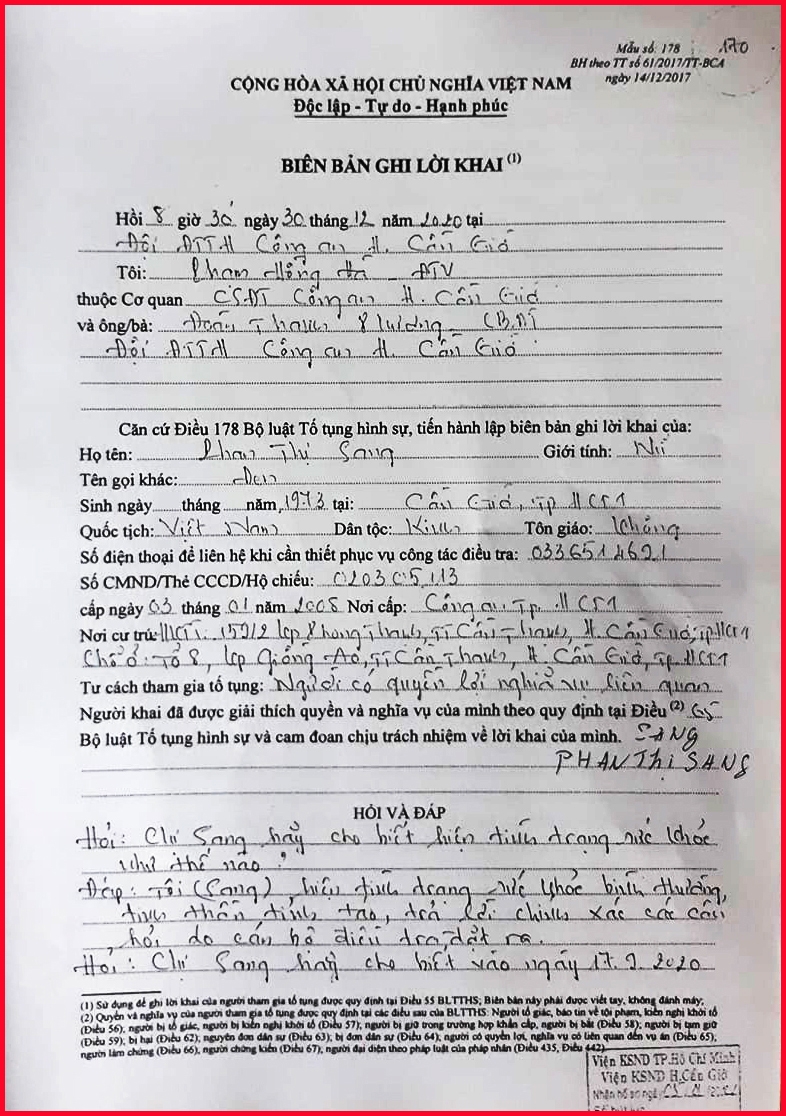 Mẫu số: 178 170
BH theo TT số 61/2017/TT-BCA
ngày 14/12/2017
CỘNG HÒA XÃ HỘI CHỦ NGHĨA VIỆT NAM
Độc lập - Tự do - Hạnh phúc
BIÊN BẢN GHI LỜI KHAI (1)
Hồi 8 giờ 30 ngày 30 tháng 12 năm 2020 tại
Đội ĐTTH Công an H. Cần Giờ
Tôi: Phạm Hồng Hà - ĐTV
thuộc Cơ quan CSĐT Công an H. Cần Giờ
và ông/bà: Đoàn Thanh CBĐT
Đội ĐTTH Công an H. Cần Giờ
Căn cứ Điều 178 Bộ luật Tố tụng hình sự, tiến hành lập biên bản ghi lời khai của:
Họ tên: Phan Thị Sang Giới tính: Nữ
Tên gọi khác: Đen
Sinh ngày tháng năm 1973 tại: Cần Giờ, Tp HCM
Quốc tịch: Việt Nam Dân tộc: Kinh Tôn giáo: Không
Số điện thoại để liên hệ khi cần thiết phục vụ công tác điều tra:
Số CMND/Thẻ CCCD/Hộ chiếu: 020305113
cấp ngày 03 tháng 01 năm 2008 Nơi cấp: Công an Tp. HCM
Nơi cư trú: HKTT: 159/2 kp Phong Thạnh, TT Cần Thạnh, H. Cần Giờ, Tp HCM
Chỗ ở: Tổ 8, kp Giồng Ao, TT Cần Thạnh, H. Cần Giờ, Tp HCM
Tư cách tham gia tố tụng: Người có quyền lợi nghĩa vụ liên quan
Người khai đã được giải thích quyền và nghĩa vụ của mình theo quy định tại Điều (2) 65
Bộ luật Tố tụng hình sự và cam đoan chịu trách nhiệm về lời khai của mình. SANG
PHAN THị SANG
HỎI VÀ ĐÁP
Hỏi: Chị Sang hãy cho biết hiện tình trạng sức khỏe
như thế nào?
Đáp: Tôi (Sang) hiện tình trạng sức khỏe bình thường,
tinh thần tỉnh táo, trả lời chính xác các câu
hỏi do cán bộ điều tra đặt ra.
Hỏi: Chị Sang hãy cho biết vào ngày 17.9.2020
(1) Sử dụng để ghi lời khai của người tham gia tố tụng được quy định tại Điều 55 BLTTHS; Biên bản này phải được viết tay, không đánh máy;
(2) Quyền và nghĩa vụ của người tham gia tố tụng được quy định tại các điều sau của BLTTHS: Người tố giác, báo tin về tội phạm, kiến nghị khởi tố
(Điều 56); người bị tố giác, người bị kiến nghị khởi tố (Điều 57); người bị giữ trong trường hợp khẩn cấp, người bị bắt (Điều 58); người bị tạm giữ
(Điều 59); bị hại (Điều 62); nguyên đơn dân sự (Điều 63); bị đơn dân sự (Điều 64); người có quyền lợi, nghĩa vụ có liên quan đến vụ án (Điều 65);
người làm chứng (Điều 66), người chứng kiến (Điều 67); người đại diện theo pháp luật của pháp nhân (Điều 435, Điều 442)
Viện KSND TP.Hồ Chí Minh
Viện KSND H.Cần Giờ
Nhận hồ sơ ngày